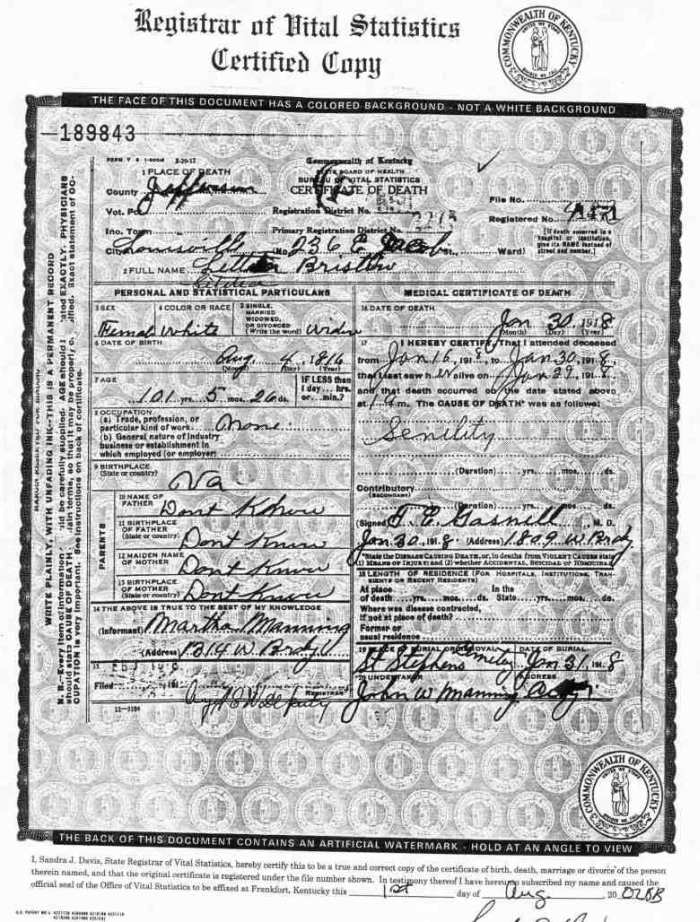 Registrar of Vital Statistics
Certified Copy
COMMONWEALTH OF KENTUCKY
THE FACE OF THIS DOCUMENT HAS A COLORED BACKGROUND - NOT A WHITE BACKGROUND
189843
Commonwealth of Kentucky
STATE BOARD OF HEALTH
BUREAU OF VITAL STATISTICS
CERTIFICATE OF DEATH
1 PLACE OF DEATH
County Jefferson
File No.
Vot. Pct.
Registration District No.
Registered No.
Inc. Town
Primary Registration District No.
City Louisville (No. 236 E Jacob Ward)
[If death occurred in a hospital or institution, give its NAME instead of street and number.]
2 FULL NAME Bristow
PERSONAL AND STATISTICAL PARTICULARS
3 SEX Female
4 COLOR OR RACE White
5 SINGLE, MARRIED, WIDOWED, OR DIVORCED (Write the word)
6 DATE OF BIRTH
Aug 4 1816
(Month) (Day) (Year)
7 AGE
101 yrs. 5 mos. 26 ds.
IF LESS than 1 day... hrs. or... min.?
8 OCCUPATION
(a) Trade, profession, or particular kind of work None
(b) General nature of industry business or establishment in which employed (or employer)
9 BIRTHPLACE (State or country) Va
PARENTS
10 NAME OF FATHER Dont Know
11 BIRTHPLACE OF FATHER (State or country) Dont Know
12 MAIDEN NAME OF MOTHER Dont Know
13 BIRTHPLACE OF MOTHER (State or country) Dont Know
14 THE ABOVE IS TRUE TO THE BEST OF MY KNOWLEDGE
(Informant) Martha Manning
(Address) 1314 W Brdy
15
Filed 191
Deputy
REGISTRAR
11-3184
MEDICAL CERTIFICATE OF DEATH
16 DATE OF DEATH
Jan 30 1918
(Month) (Day) (Year)
17 I HEREBY CERTIFY, That I attended deceased
from Jan 16, 1918, to Jan 30, 1918,
that I last saw her alive on Jan 29, 1918,
and that death occurred on the date stated above
at m. The CAUSE OF DEATH* was as follows:
Senility
(Duration) yrs. mos. ds.
Contributory
(SECONDARY)
(Duration) yrs. mos. ds.
(Signed) M. D.
Jan 30, 1918 (Address) 1809 W Brdy
*State the DISEASE CAUSING DEATH, or, in deaths from VIOLENT CAUSES state (1) MEANS OF INJURY; and (2) whether ACCIDENTAL, SUICIDAL or HOMICIDAL
18 LENGTH OF RESIDENCE (FOR HOSPITALS, INSTITUTIONS, TRANSIENTS OR RECENT RESIDENTS)
At place of death yrs. mos. ds. In the State yrs. mos. ds.
Where was disease contracted, if not at place of death?
Former or usual residence
19 PLACE OF BURIAL OR REMOVAL DATE OF BURIAL
St Stephens Cemetery Jan 31, 1918
20 UNDERTAKER ADDRESS
John W Manning City
WRITE PLAINLY, WITH UNFADING INK—THIS IS A PERMANENT RECORD
COMMONWEALTH OF KENTUCKY
THE BACK OF THIS DOCUMENT CONTAINS AN ARTIFICIAL WATERMARK - HOLD AT AN ANGLE TO VIEW
I, Sandra J. Davis, State Registrar of Vital Statistics, hereby certify this to be a true and correct copy of the certificate of birth, death, marriage or divorce of the person
therein named, and that the original certificate is registered under the file number shown. In testimony thereof I have hereunto subscribed my name and caused the
official seal of the Office of Vital Statistics to be affixed at Frankfort, Kentucky this 1st day of Aug. 20